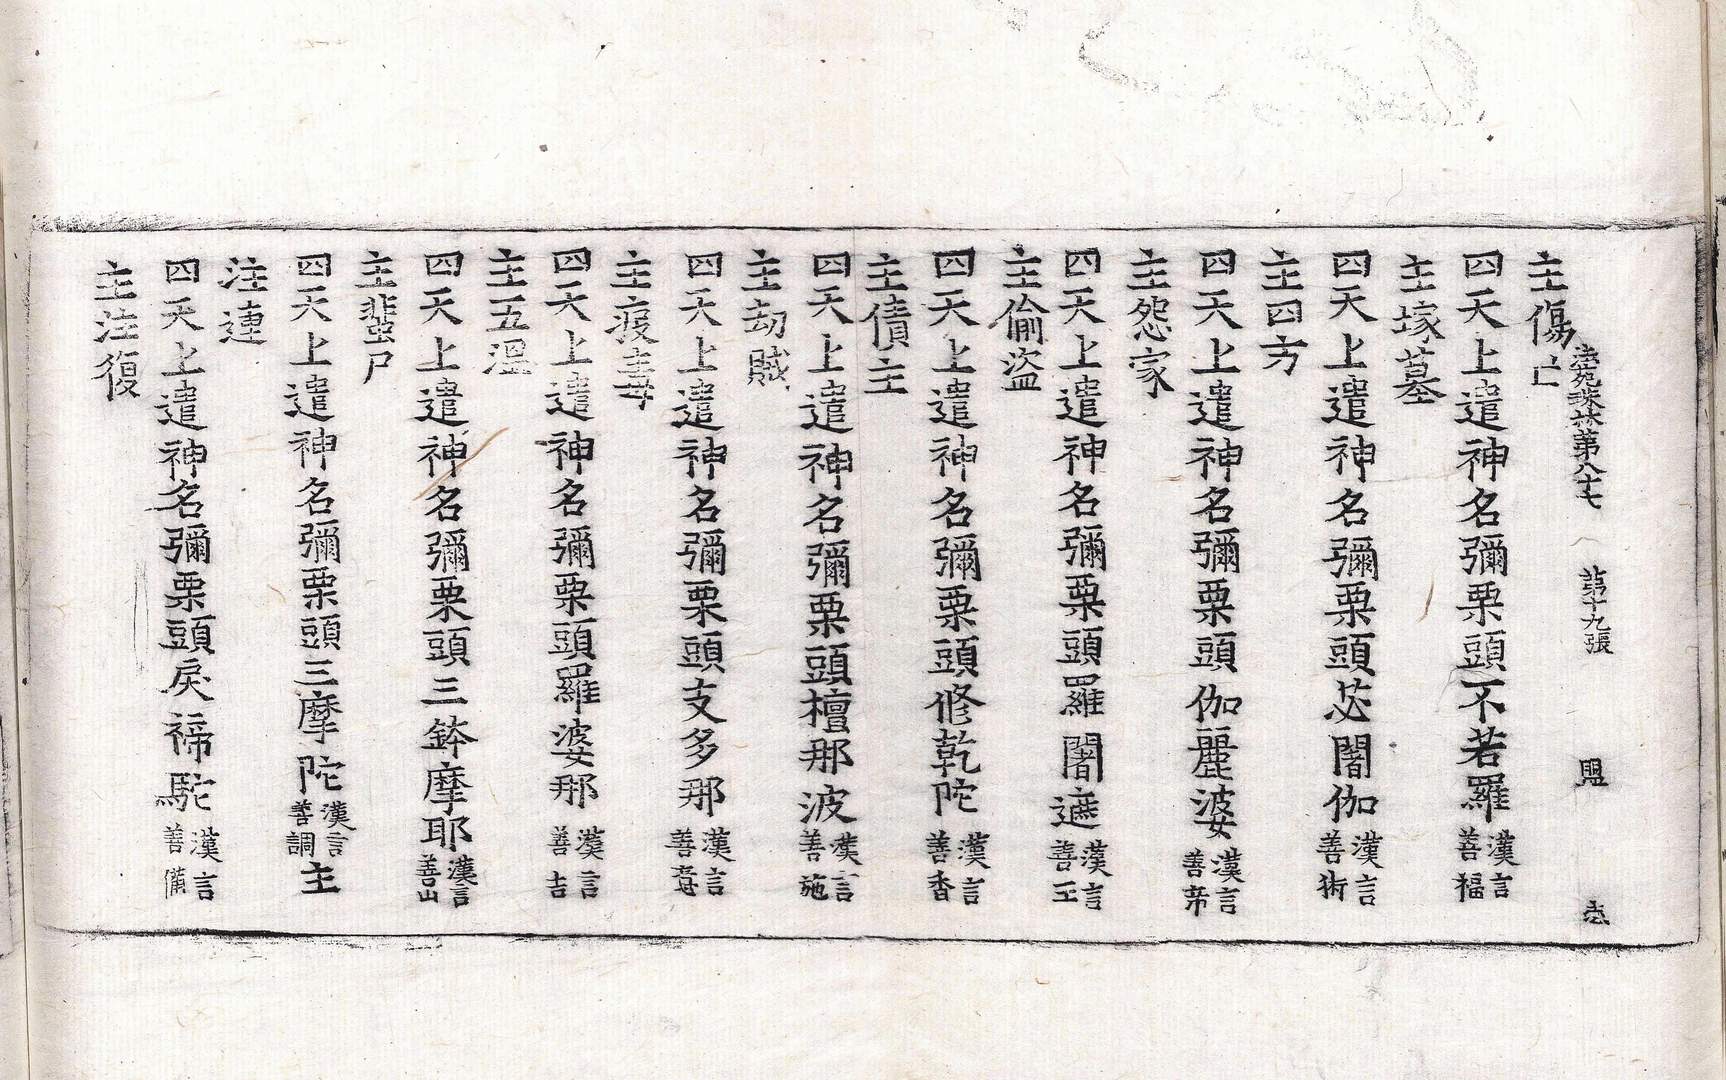 主傷亡
法苑珠林第八十七 第十九張 盟
四天上遣神名彌栗頭不若羅漢言善福
主塚墓
四天上遣神名彌栗頭苾闍伽漢言善術
主四方
四天上遣神名彌栗頭伽麗婆漢言善帝
主怨家
四天上遣神名彌栗頭羅闍遮漢言善王
主偷盜
四天上遣神名彌栗頭修乾陀漢言善香
主債主
四天上遣神名彌栗頭檀那波漢言善施
主劫賊
四天上遣神名彌栗頭支多那漢言善意
主疫毒
四天上遣神名彌栗頭羅婆那漢言善吉
主五溫
四天上遣神名彌栗頭三鉢摩耶漢言善山
主蜚尸
四天上遣神名彌栗頭三摩陀漢言善調主
注連
四天上遣神名彌栗頭戾禘駝漢言善備
主注復